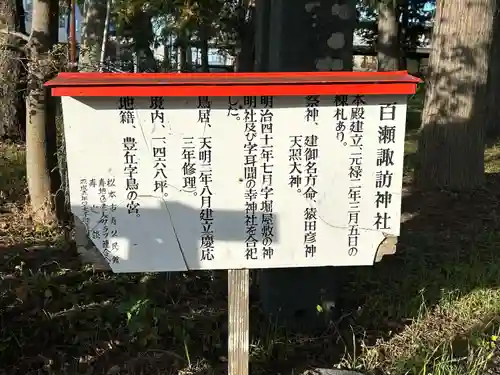 百瀬諏訪神社
本殿建立、元禄二年三月五日の
棟札あり。
祭神、建御名方命、猿田彦神
天照大神。
明治四十一年七月字堀屋敷の神
明社及び字耳間の幸神社を合祀
した。
鳥居、天明二年八月建立慶応
三年修理。
境内、一二四六八坪。
地籍、豊丘字鳥の宮。
松本市寿公民館